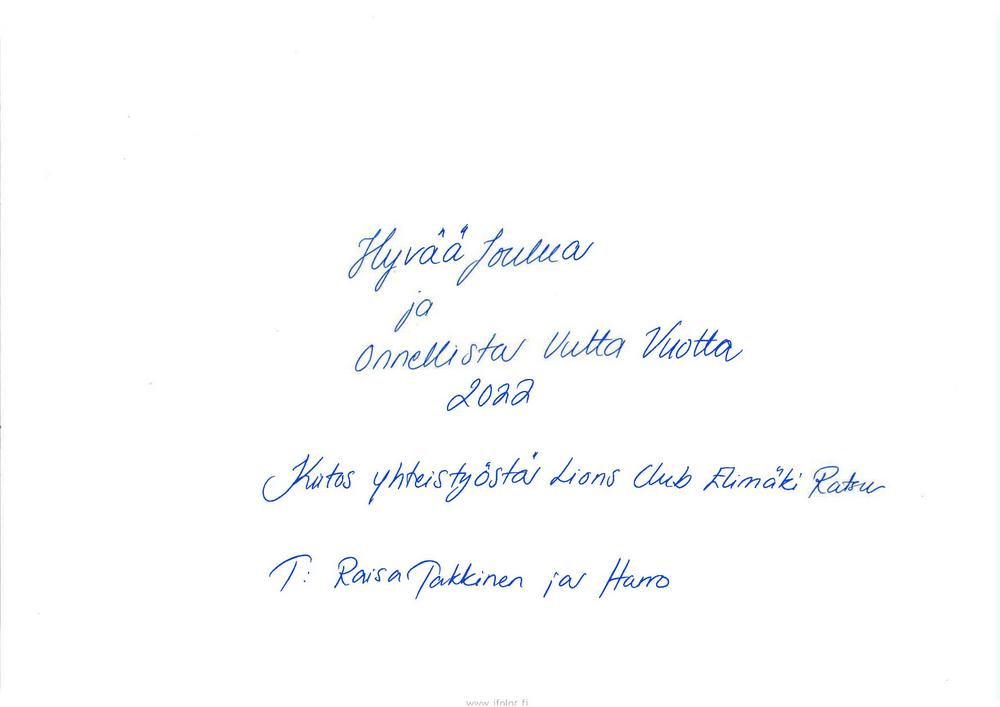 Hyvää Joulua
ja
Onnellista Uutta Vuotta
2022
Kiitos yhteistyöstä Lions Club Elimäki Ratsu
T: Raisa Takkinen ja Harro
www.ifolor.fi